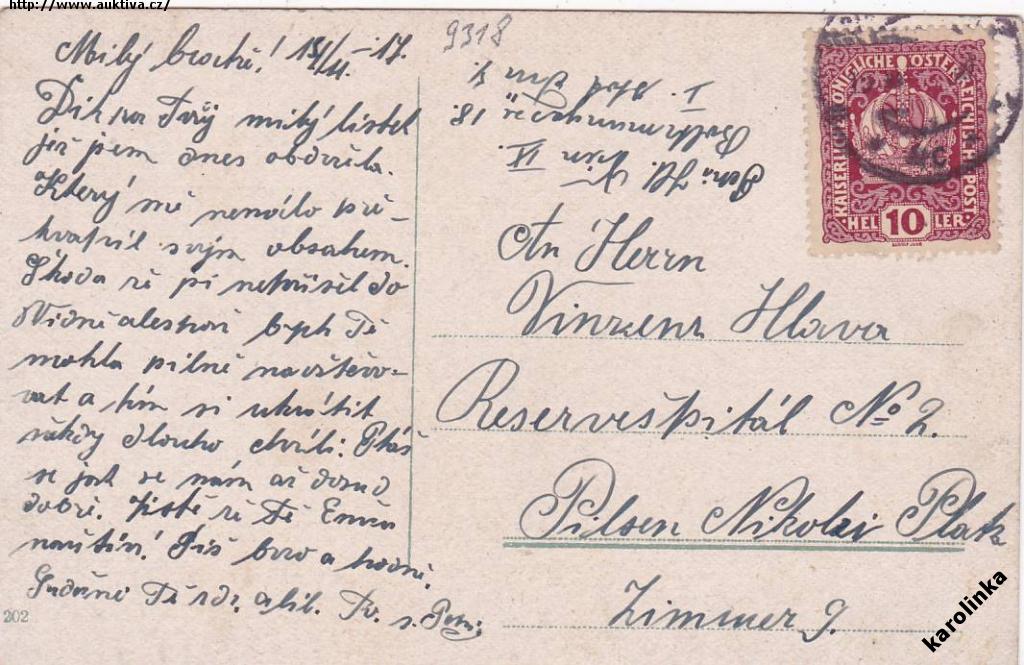 http://www.auktiva.cz/
9318
Milý brochů! 15/II – 17.
Dík na Tvůj milý lístek
již jsem dnes obdržela.
Který mě nemálo pře-
kvapil svým obsahem.
Škoda že si nepřišel do
Vídně alespoň bych Tě
mohla pilně navštěvo-
vat a tím si ukrátit
někdy dlouho chvíli. Ptáš
se jak se nám až dosud
dobře. Jistě že Tě Emca
navštíví! Piš brzo a hodně.
Srdečně Tě zdr. a líb. Tv. s. Pepi
202
Pepi Hl. Wien VI.
18
I.
KAISERLICHE KÖNIGLICHE ÖSTERREICHISCHE POST
HELLER
10
An Herrn
Vinzenz Hlava
Reservešpitál No 2.
Pilsen Nikolai Platz
Zimmer 9.
karolinka